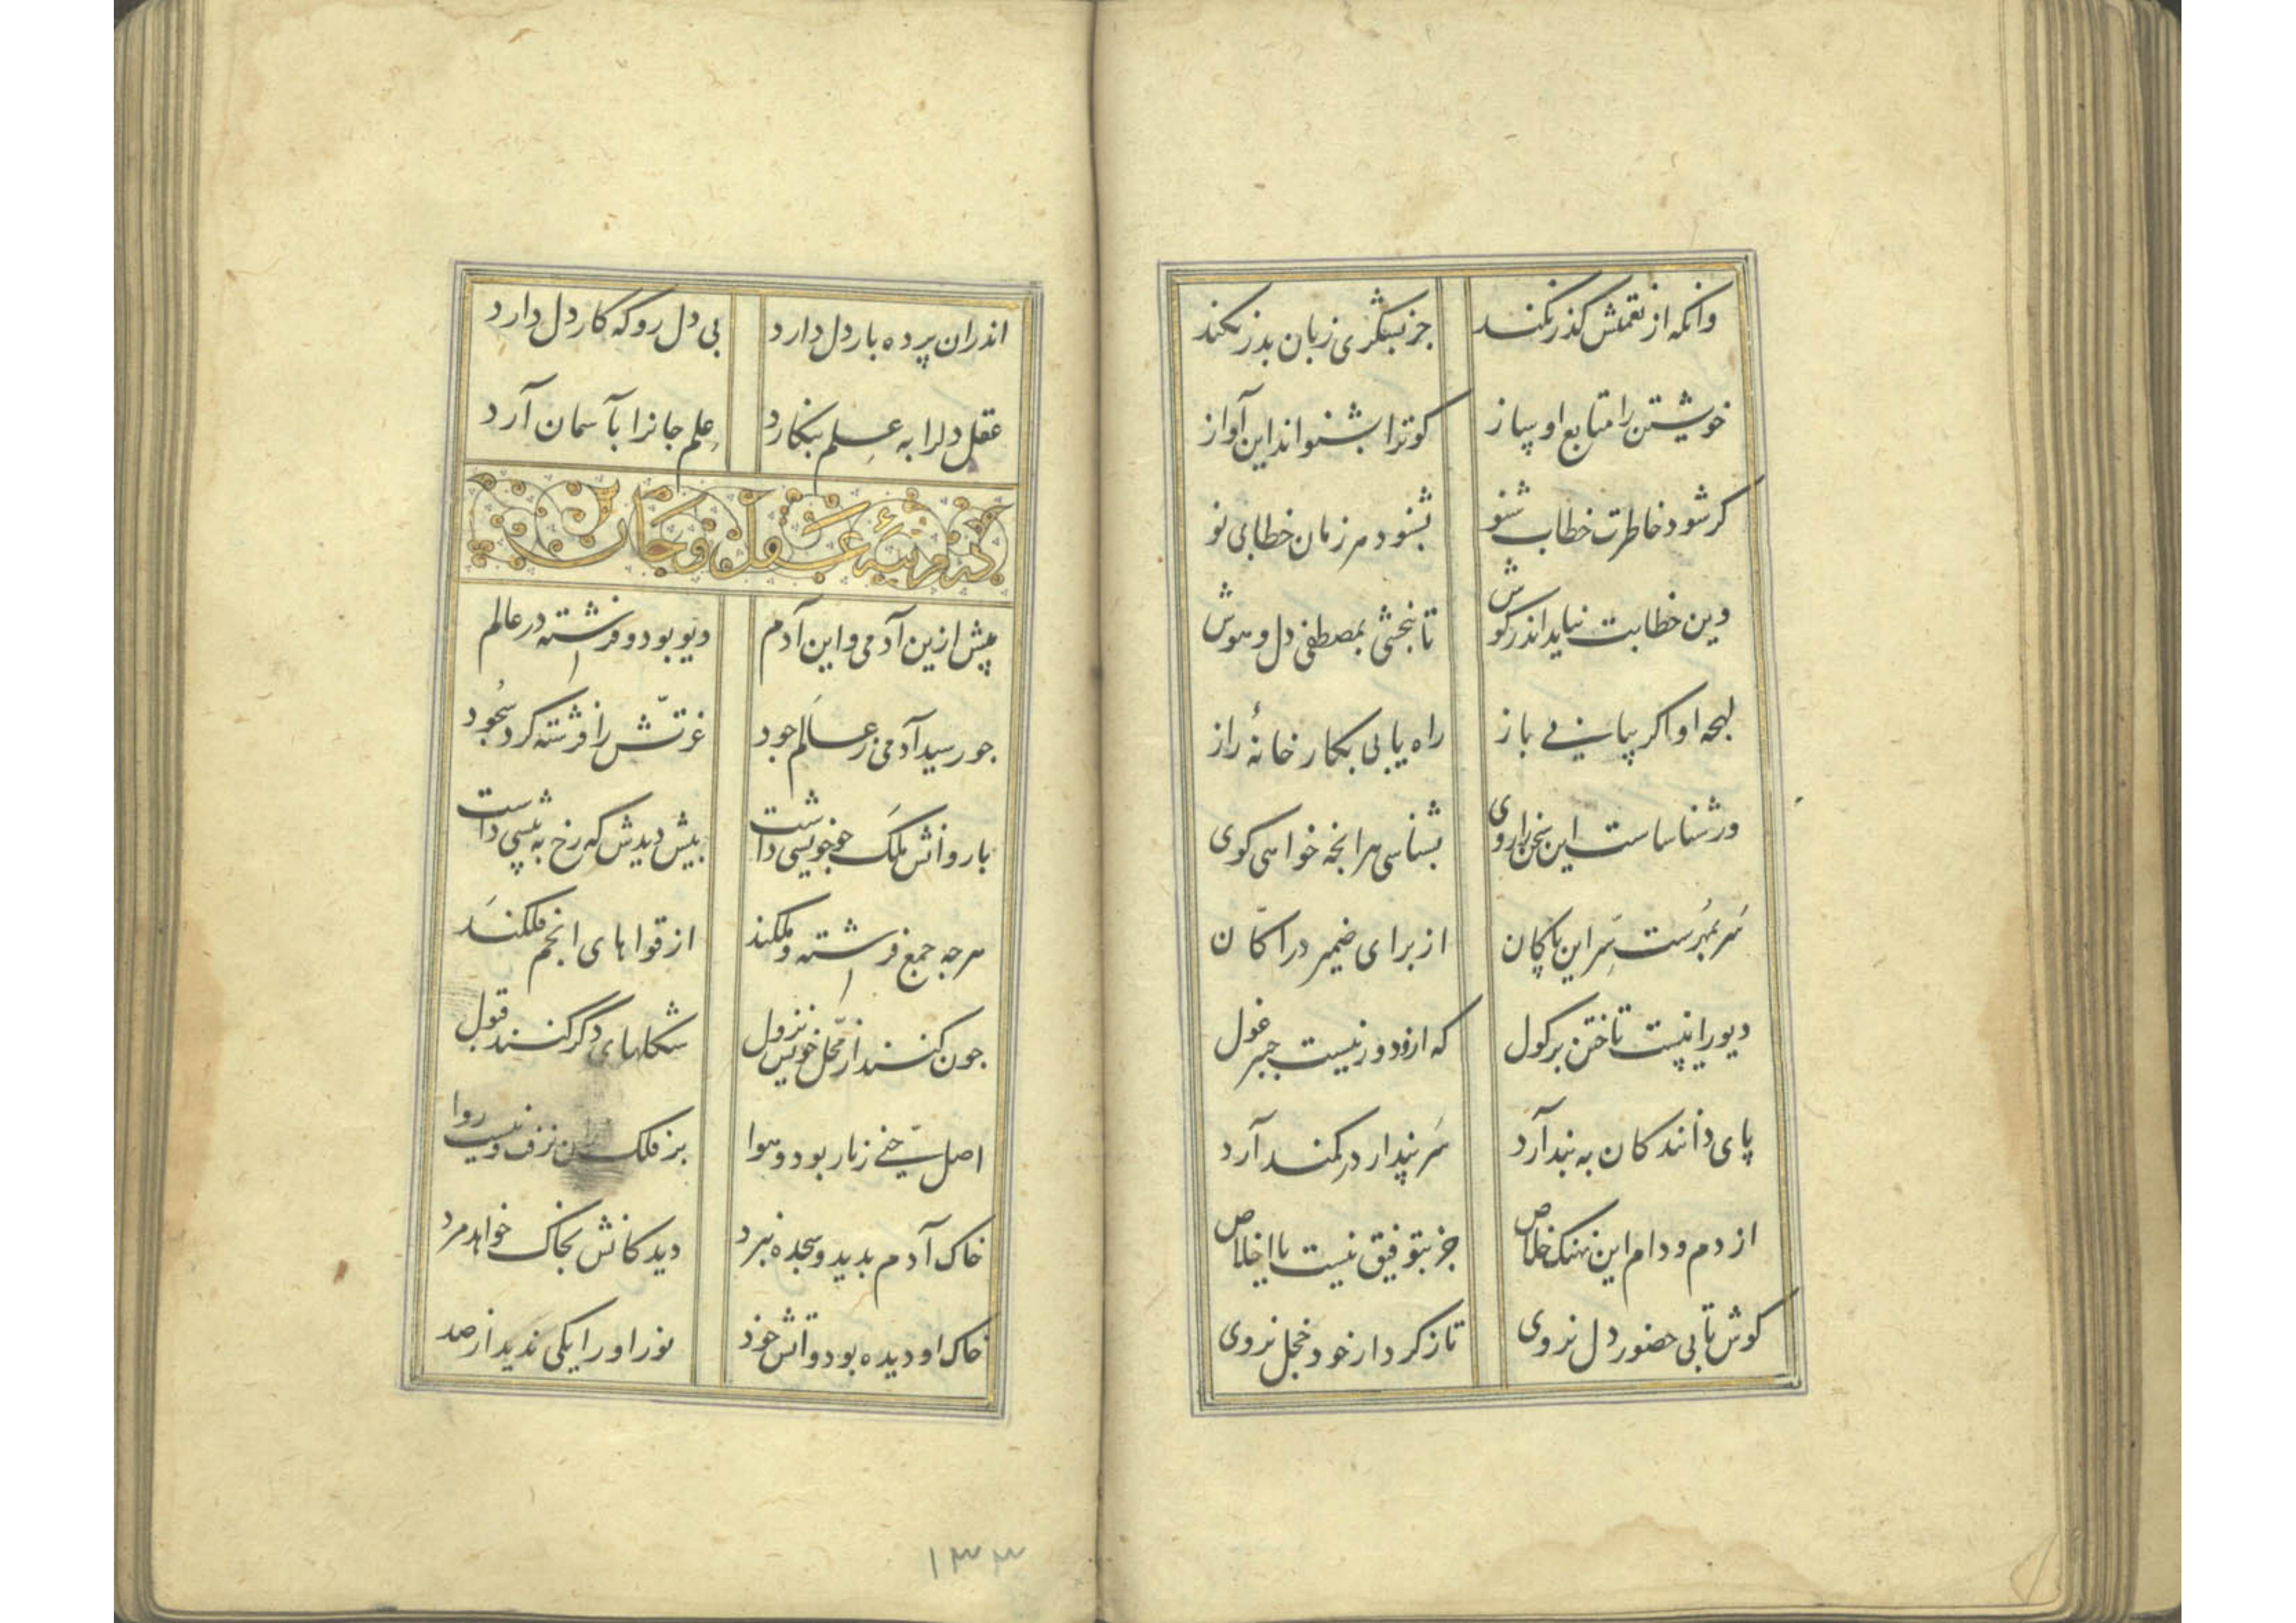 وانکه از نعمتش گذر نکند جز بشکری زبان بدر نکند
خویشتن را متابع او ساز کو ترا بشنواند این آواز
کر شود خاطرت خطاب شنو بشنود هر زمان خطابی نو
وین خطابت نیاید اندر کوش تا نبخشی بمصطفی دل و هوش
لهجه او اکر بیابی باز راه یابی بکارخانهٔ راز
ور شناسا ست این سخن را روی بشناسی هرانچه خواهی کوی
سر بمهرست سر این پاکان از برای ضمیر دراکان
دیو را نیست تاختن بر کول که ازو دور نیست جبر غول
پای دانندکان به بند آرد سر پندار در کمند آرد
از دم و دام این نهنک خلاص جز بتوفیق نیست با اخلاص
کوش تا بی حضور دل نروی تا ز کردار خود خجل نروی
اندران پرده بار دل دارد بی دل رو که کار دل دارد
عقل دلرا به علم بنکارد علم جانرا بآسمان آرد
در مرتبهٔ عقل و جان
پیش ازین آدمی و این آدم دیو بود و فرشته در عالم
جو رسید آدمی ز عالم جود غرتش را فرشته کرد سجود
با روانش ملک جو خویشی داشت بیش دیدش که رخ به پیشی داشت
هرجه جمع فرشته و ملکند از قواهای انجم فلکند
جون کنند از محل خویش نزول شکلهای دگر کنند قبول
اصل جنی ز نار بود و هوا بر فلک نزف نیست روا
خاک آدم بدید و سجده نبرد دید کانش بخاک خواهد مرد
خاک او دیده بود و اتش خود نور او را یکی ندید از صد
۱۳۳